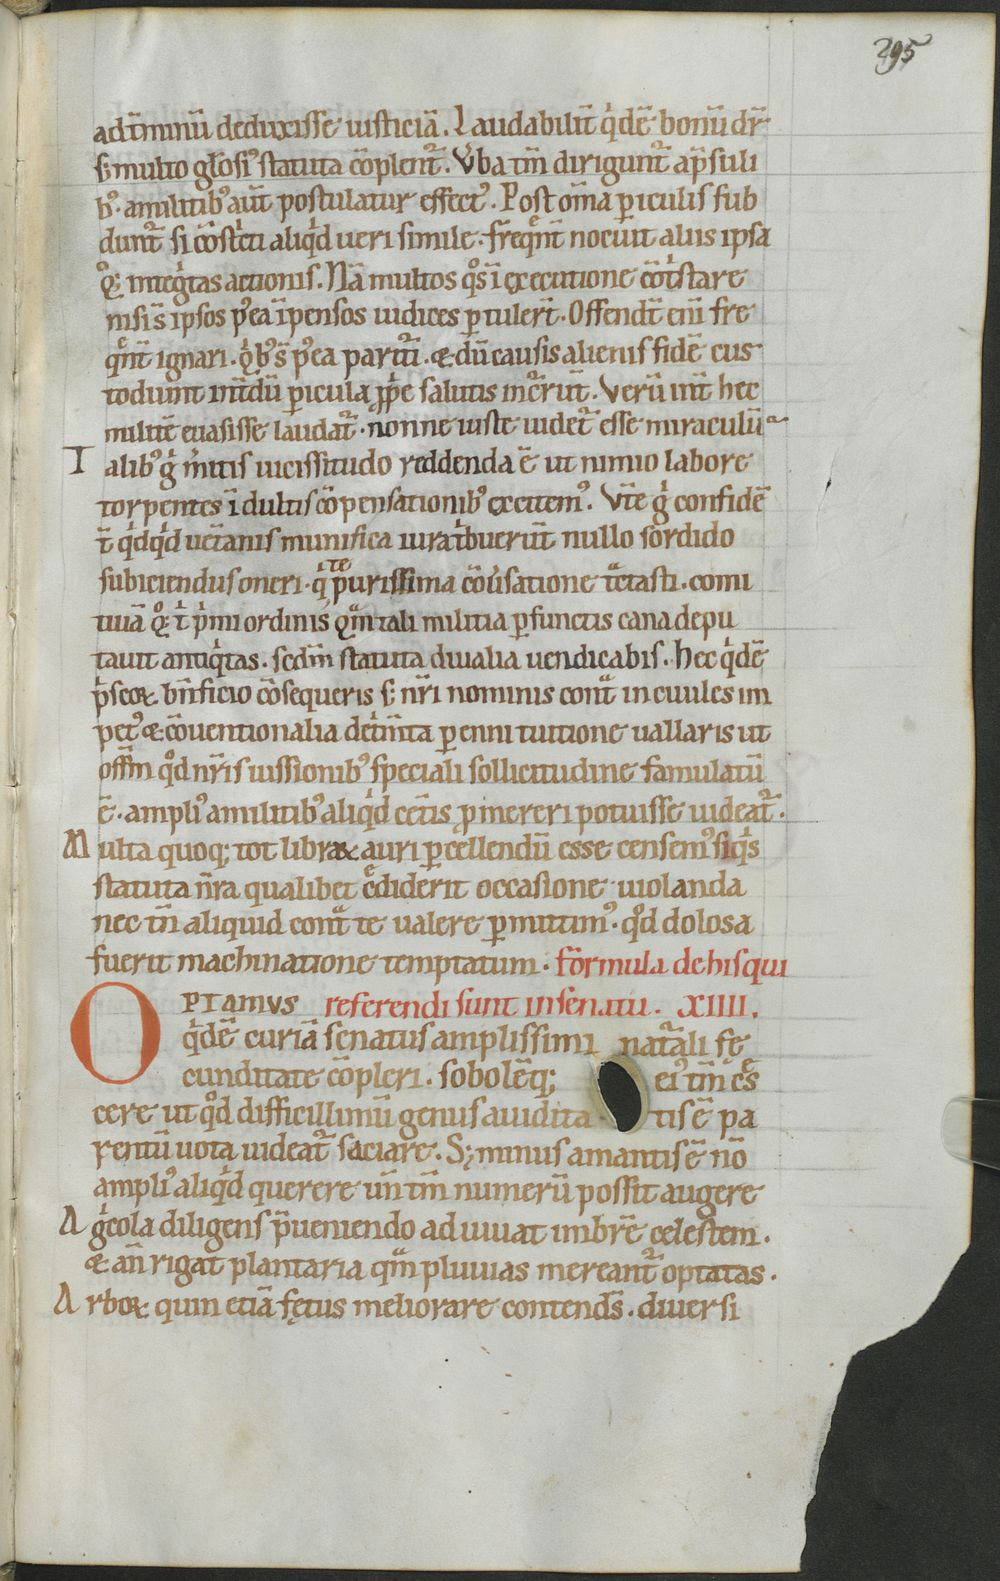 295
adt̄minū deduxisse iusticiā. Laudabilit̄ q'dē bonū dr̄
s; multo gl̄osi' statuta cōplent᷑. V̓ba tm̄ dirigunt᷑ ap̄suli
b'. a militib' aut̄ postulatur effect'. Post om̄a ꝑiculis sub
dunt᷑ si cōsteti aliq'd ueri simile. freq̄nt̄ nocuit aliis ipsa
qͦꝫ integ'tas actionis. Nā multos qͦs ī executione cōt'stare
nisi s̄ ipsos p̓ea īpensos iudices ꝑtuler̄t. Offendt̄ eni fre
q̄nt̄ ignari. q'b's̄ p̓ea parit᷑. & dū causis alienis fidē cus
todiunt int̄dū ꝑicula ꝓp'e salutis inc᷑rūt. Verū int̄ hec
militē euasisse laudat᷑. nonne iuste uidet᷑ esse miraculū
Talib' g' m̓itis uicissitudo reddenda ē ut nimio labore
torpentes īdultis cōpensationib' excitem'. Vn̄e g' confidē
t̄ q'dq'd uet̓anis munifica iura t'buerūt nullo sordido
subiciendus oneri. q' te purissima cōu̓satione t᷑ctasti. comi
tiuā qͦꝫ t' p'mi ordinis qᷓm tali militia ꝑfunctis cana depu
tauit antiq'tas. sedm̄ statuta diualia uendicabis. hec q'dē
p'scoꝝ bn̄ficio cōsequeris s; nr̄i nominis contᷓ inciuiles im
pet' & cōuentionalia det'm̄ta ꝑenni tuitione uallaris ut
offm̄ qͦd nr̄is iussionib' speciali sollicitudine famulatū
ē. ampli' a militib' aliq'd cet̓is ꝓmereri potuisse uideat᷑.
Multa quoq; tot libraꝝ auri ꝑcellendū esse censem' siq's
statuta nr̄a qualibet c̄diderit occasione uiolanda
nec tn̄ aliquid contᷓ te ualere ꝑmittim'. qͦd dolosa
fuerit machinatione temptatum. formula de his qui
OPTAMVS referendi sunt in senatu. XIIII.
q'dē curiā senatus amplissimi nat᷑ali fe
cunditate cōpleri. sobolēq; ei' tm̄ c̄s
cere ut qͦd difficillimū genus auidita tis ē pa
rentū uota uideat᷑ saciare. S; minus amantis ē nō
ampli' aliq'd querere un̄ tm̄ numerū possit augere
Ag'cola diligens p̄ueniendo adiuuat imbrē celestem.
& an̄ rigat plantaria qᷓm pluuias mereant᷑ optatas.
Arboꝝ quin etiā fętus meliorare contend̄s. diuersi